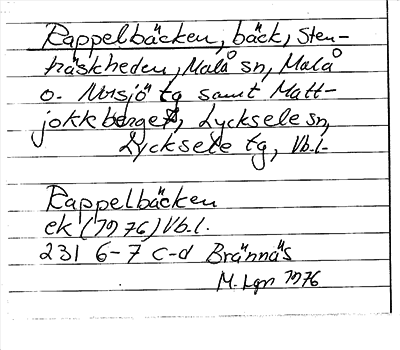 Rappelbäcken, bäck, Sten-
träskheden, Malå sn, Malå
o. Norsjö tg samt Matt-
jokkberget, Lycksele sn,
Lycksele tg, Vb.l.
Rappelbäcken
ek (1976) Vb.l.
231 6-7 c-d Brännäs
M. Lgn 1976